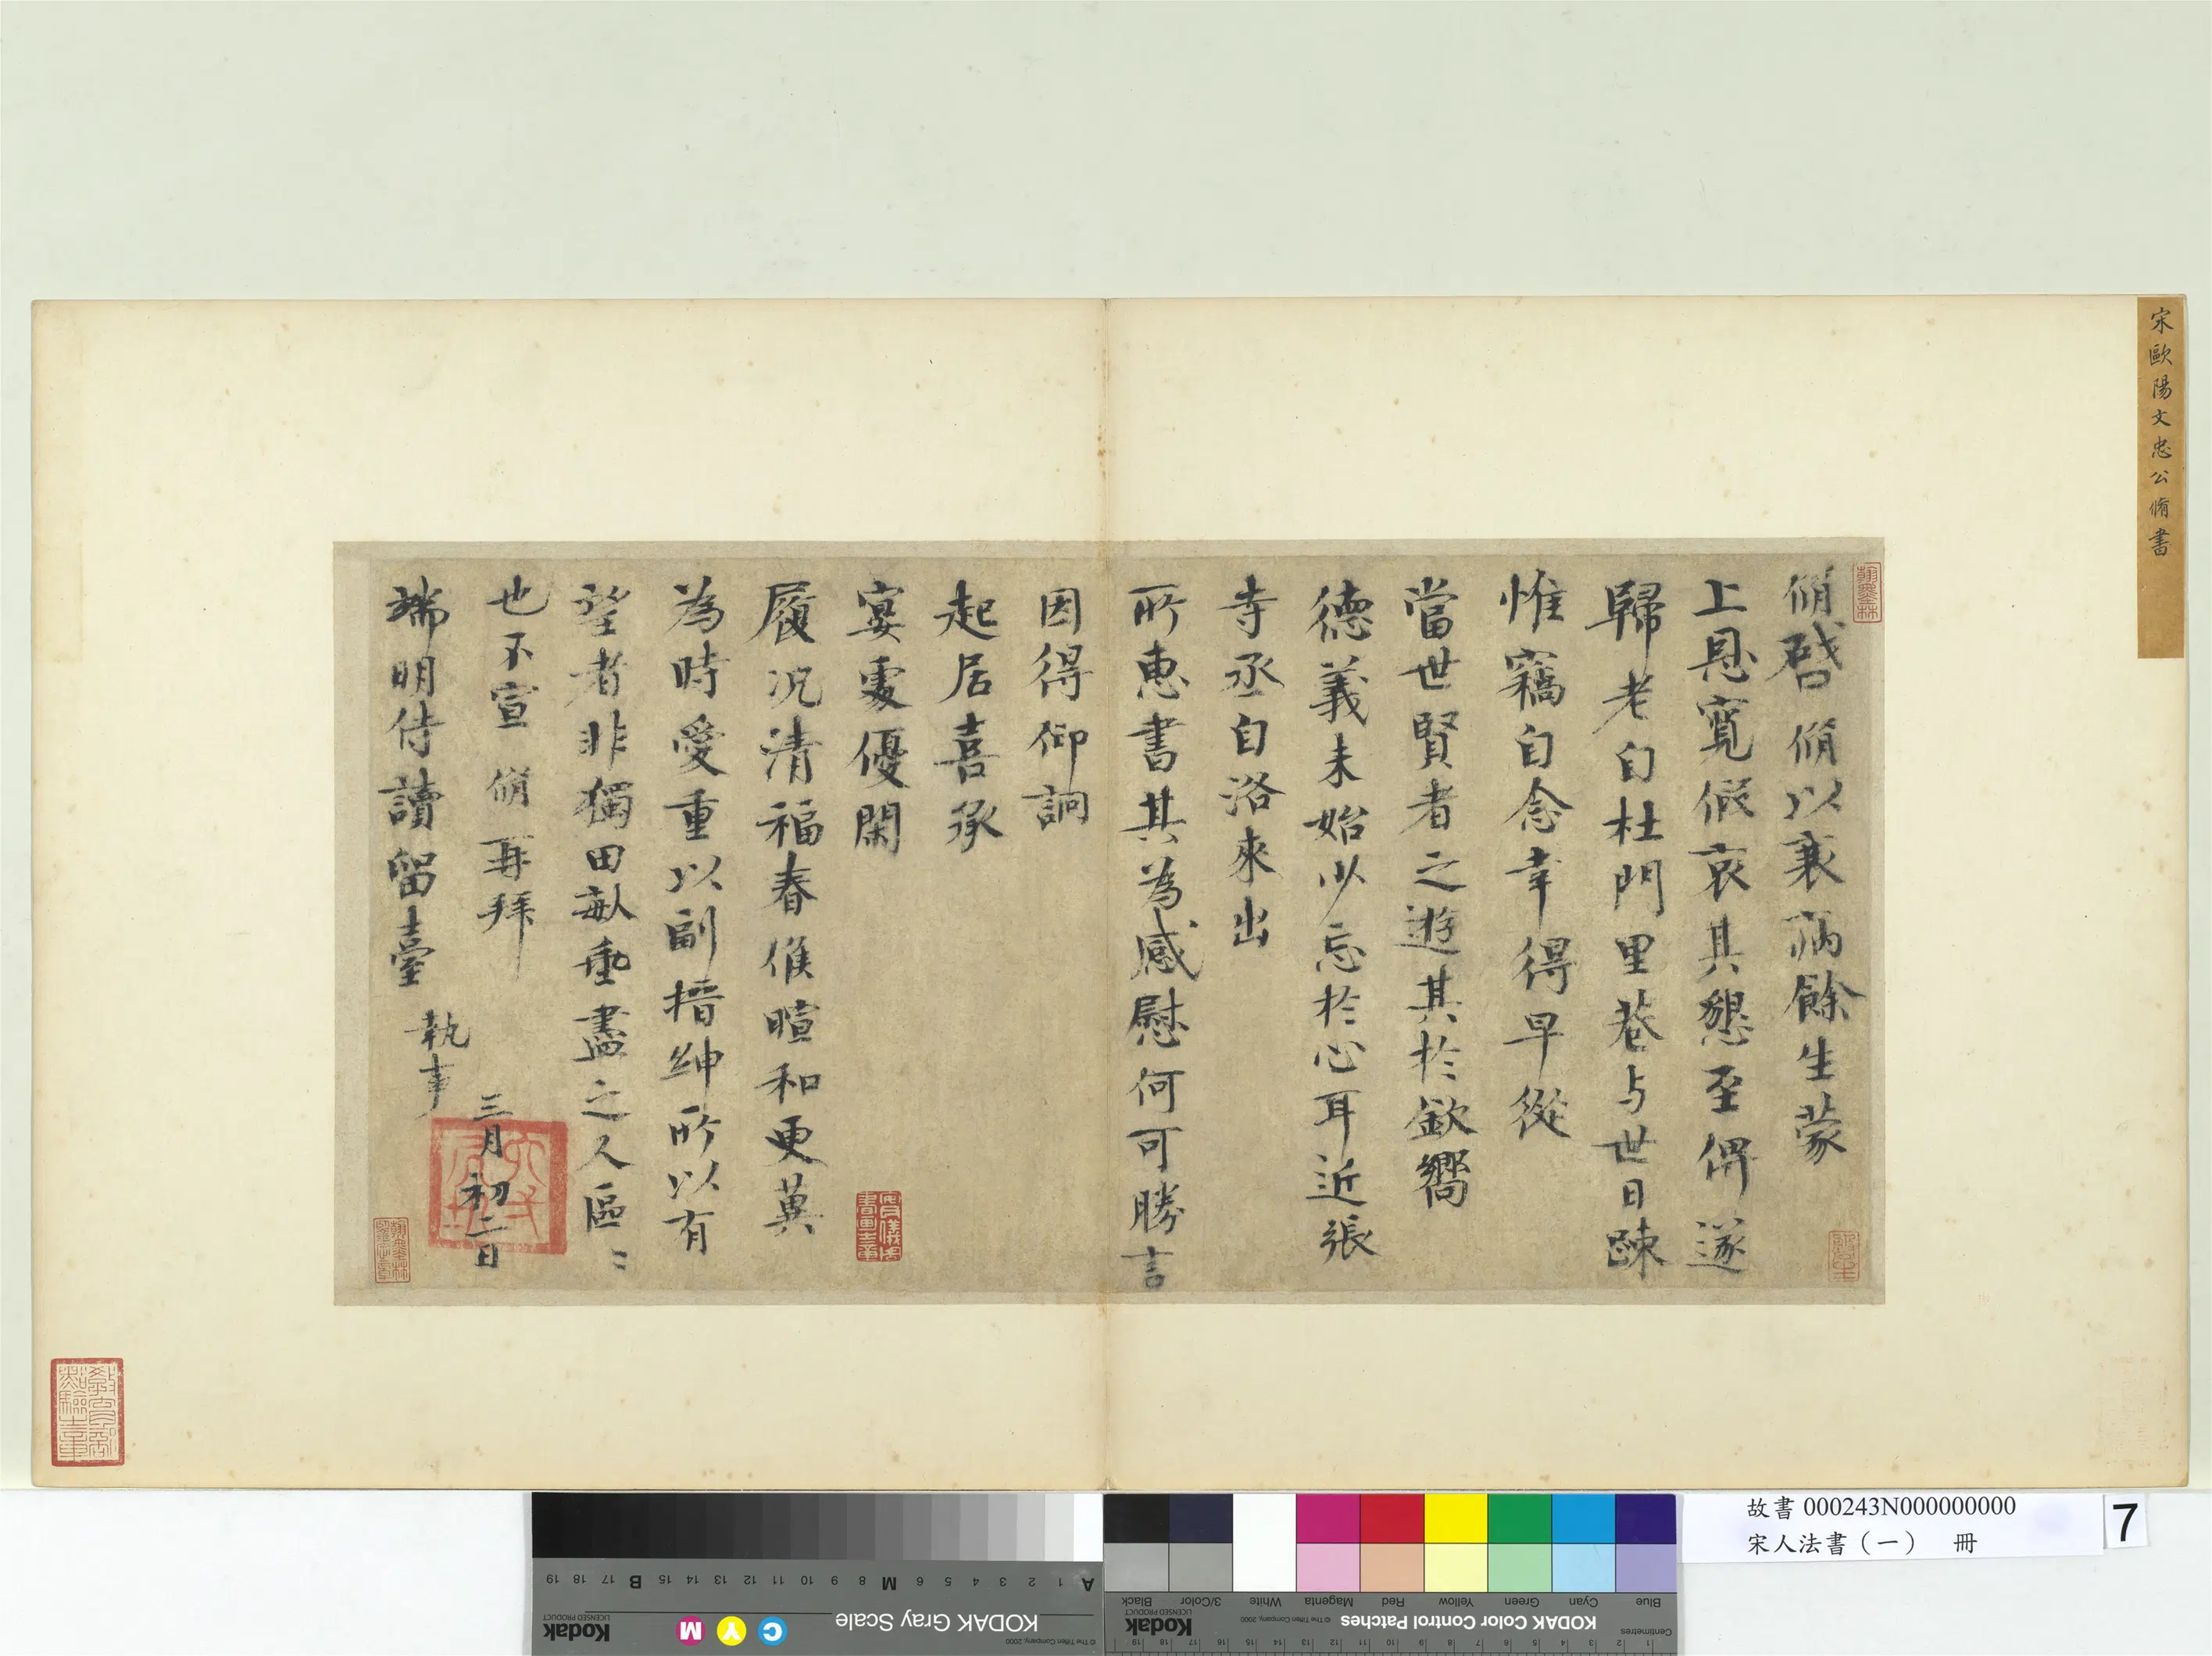 宋歐陽文忠公脩書
脩啓脩以衰病餘生蒙
上恩寬假哀其懇至俾遂
歸老自杜門里巷与世日疎
惟竊自念幸得早從
當世賢者之遊其於欽嚮
德義未始少忘於心耳近張
寺丞自洛來出
所惠書其為感慰何可勝言
因得仰詗
起居喜承
宴處優閑
履況清福春候暄和更冀
為時愛重以副搢紳所以有
望者非獨田畝垂盡之人區〻
也不宣 脩再拜
端明侍讀留臺 執事
三月初二日
故書 000243N000000000
宋人法書(一) 冊
7
KODAK Gray Scale
Kodak
LICENSED PRODUCT
© The Tiffen Company, 2000
A 1 2 3 4 5 6 M 8 9 10 11 12 13 14 15 B 17 18 19
C Y M
KODAK Color Control Patches
Kodak
LICENSED PRODUCT
© The Tiffen Company, 2000
Blue Cyan Green Yellow Red Magenta White 3/Color Black
Centimetres